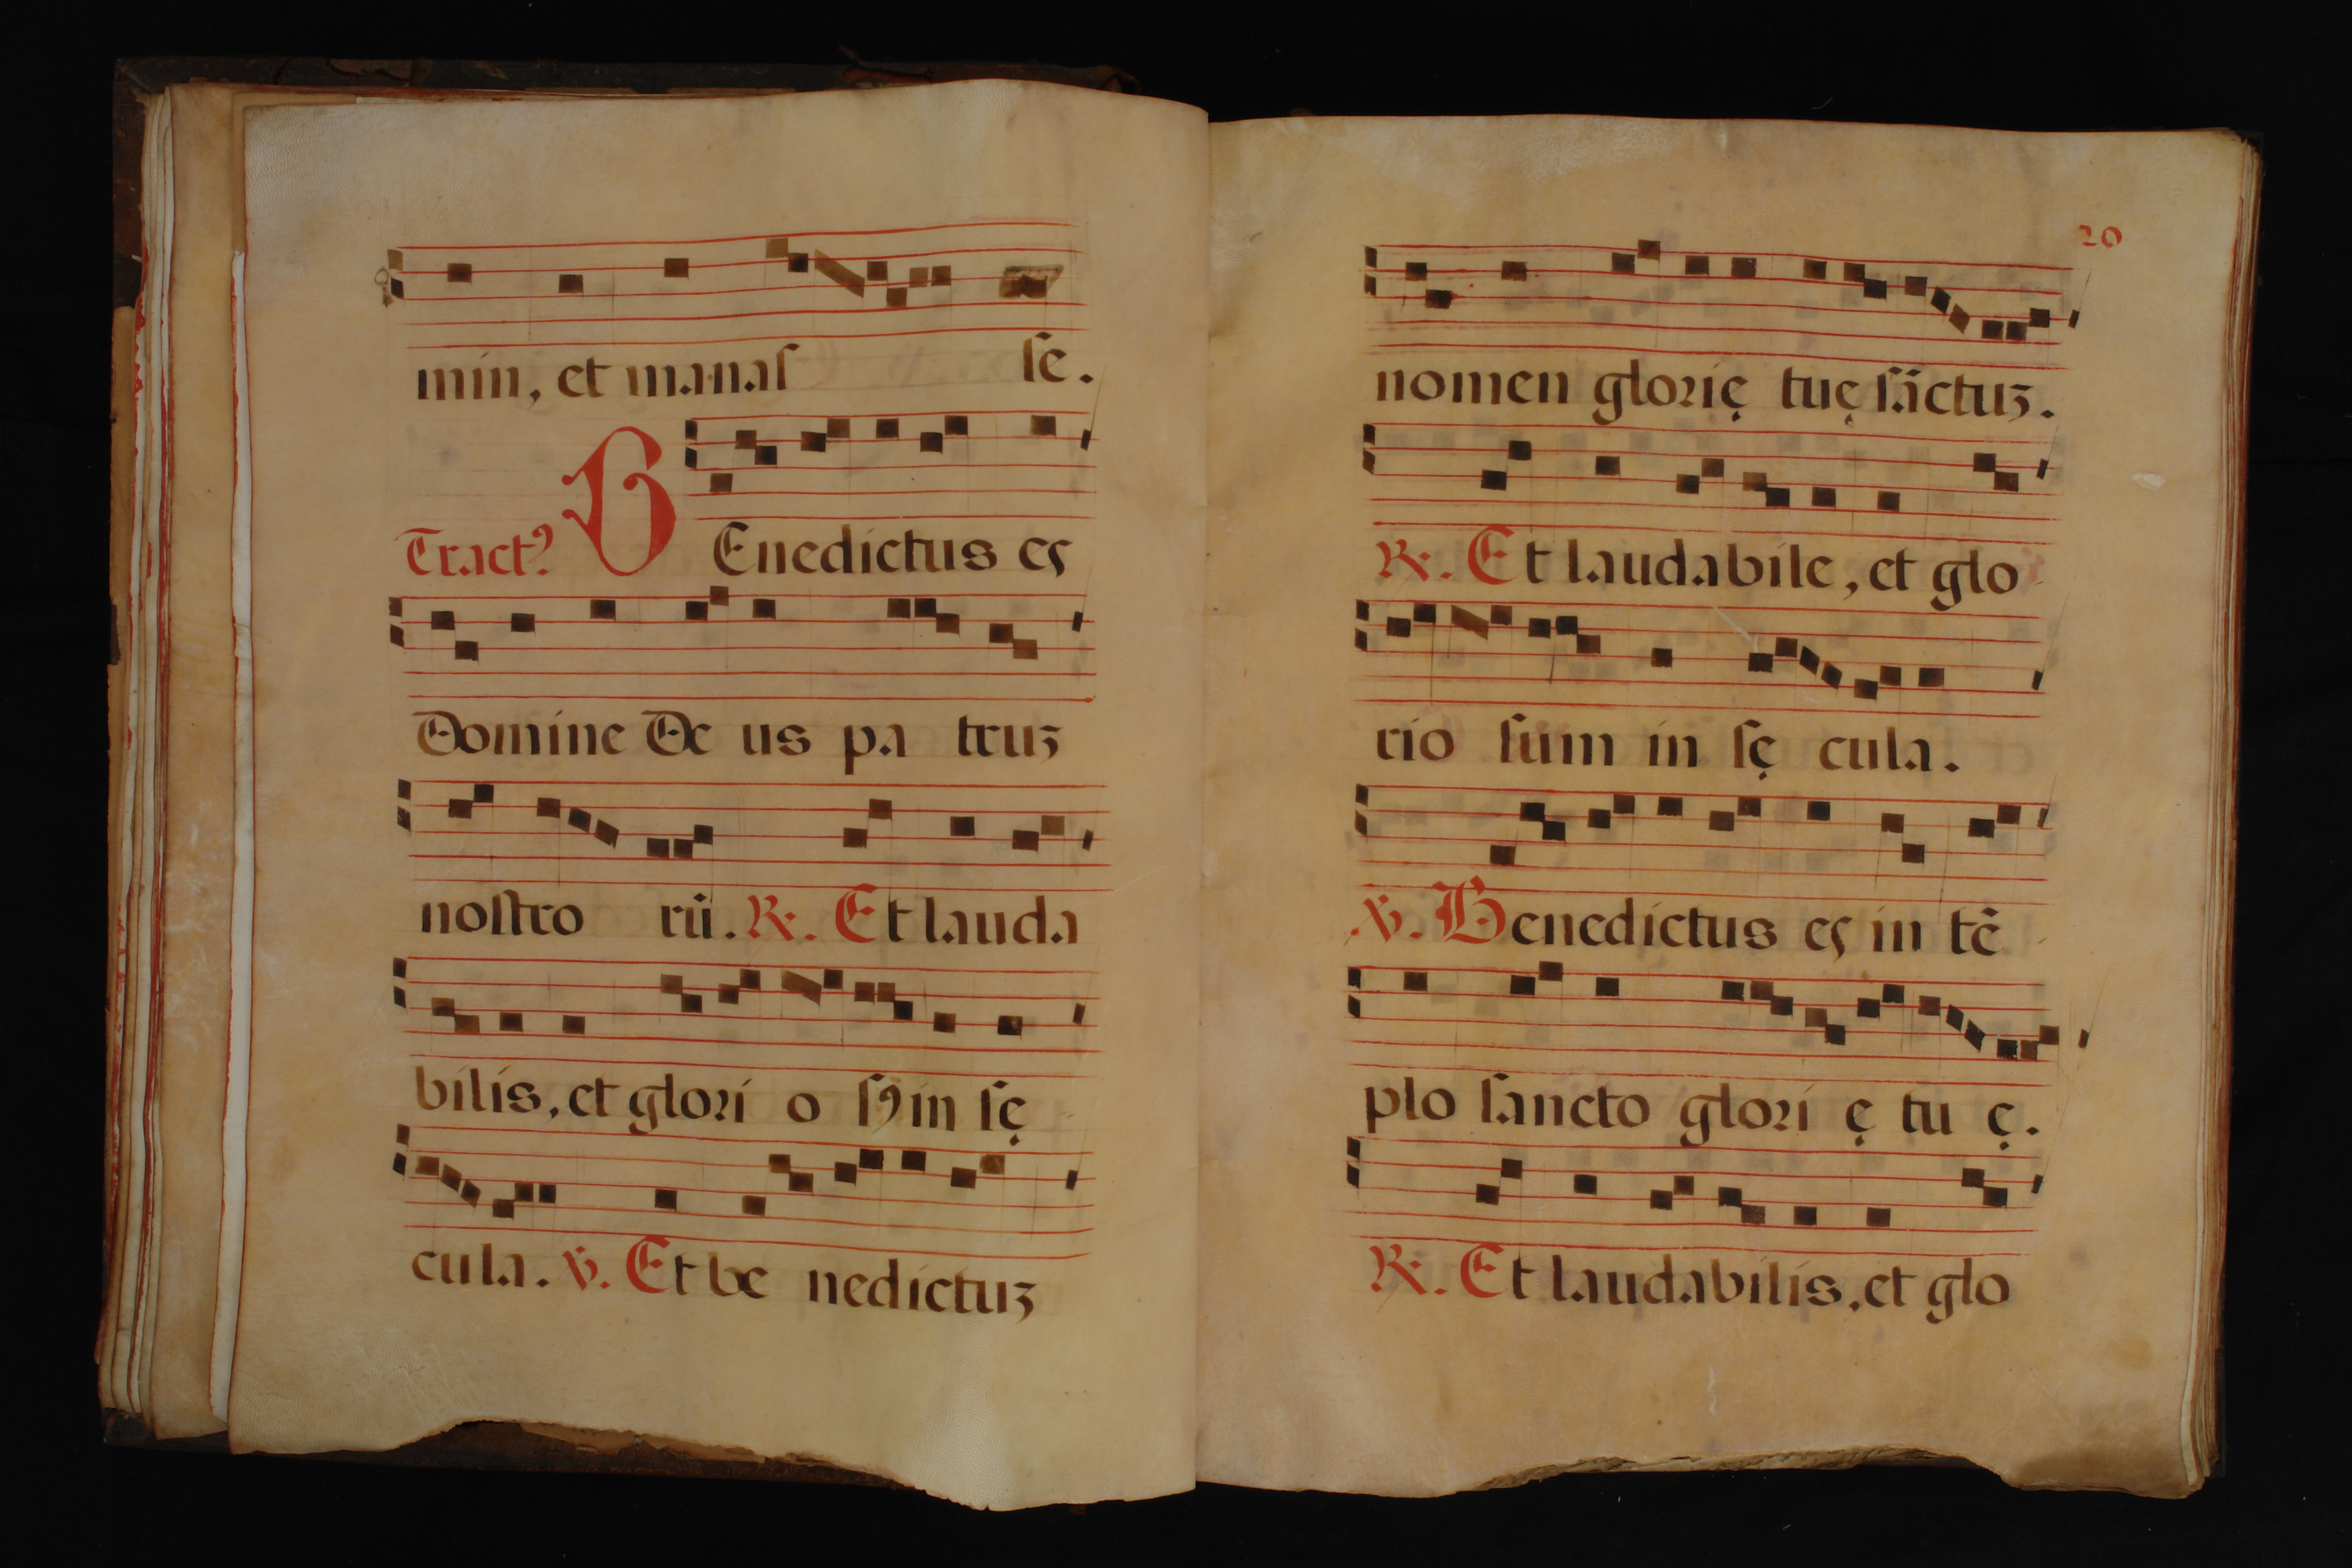 min, et manaſ ſe.
Tractꝰ BEnedictus es
Domine De us pa truꝫ
noſtro rū. ℟. Et lauda
bilis, et glori o ſꝰ in ſę
cula. ℣. Et be nedictuꝫ
20
nomen glorię tuę ſāctuꝫ.
℟. Et laudabile, et glo
rio ſum in ſę cula.
℣. Benedictus es in tē
plo ſancto glori ę tu ę.
℟. Et laudabilis, et glo